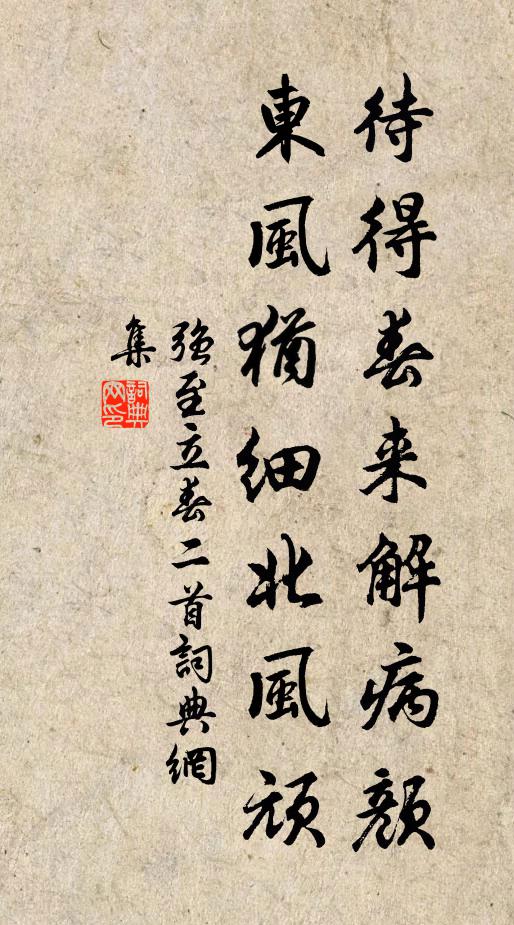 待得春来解病顔
東風猶細北風頑
強至立春二首詞典網
集
詞典
网印